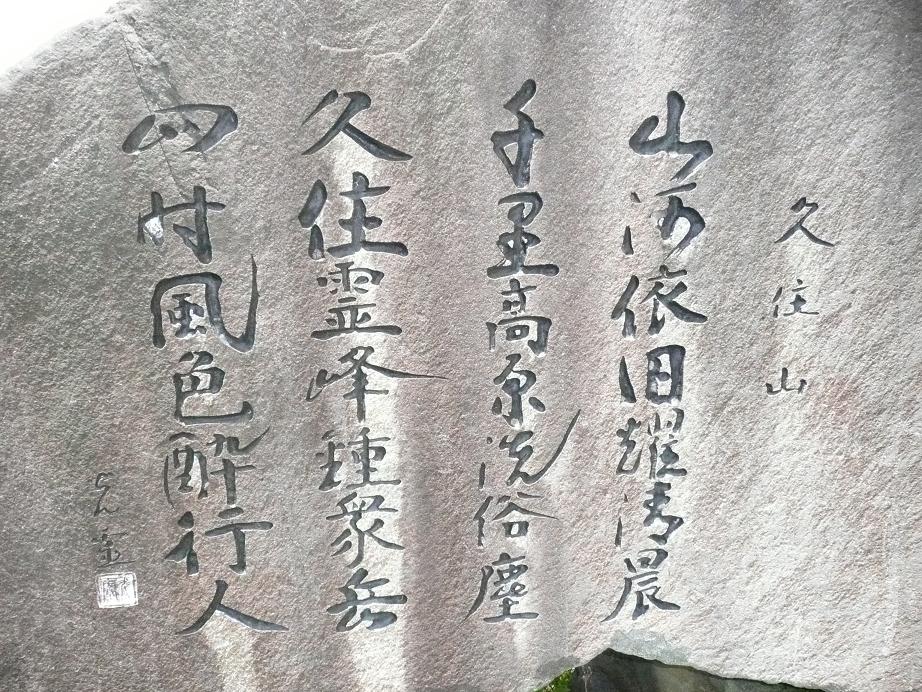 久住山
山河依旧耀清晨
千里高原洗俗塵
久住霊峰鍾衆岳
四時風色酔行人